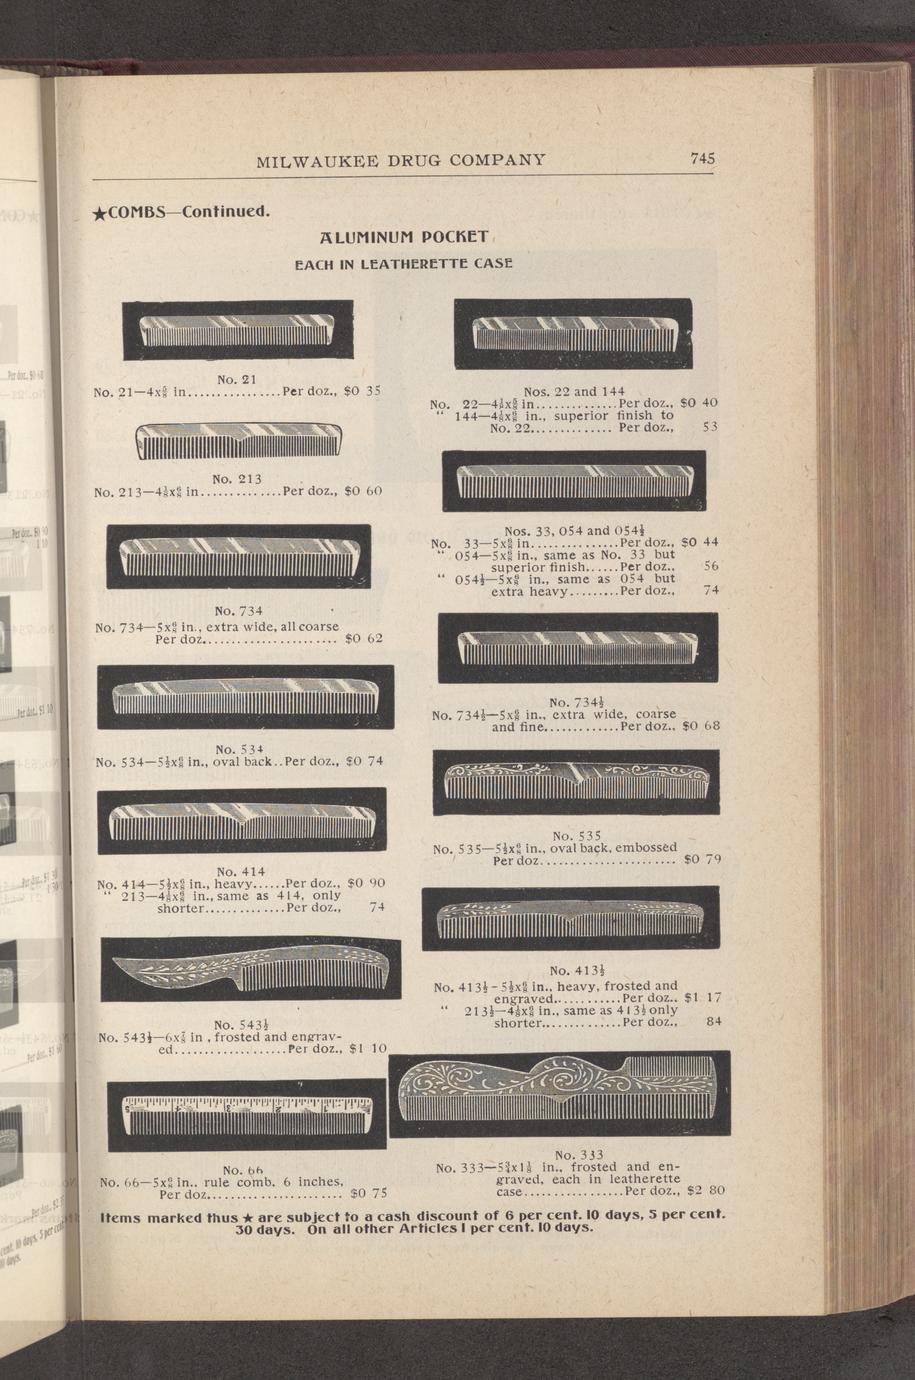 MILWAUKEE DRUG COMPANY 745
★COMBS—Continued.
ALUMINUM POCKET
EACH IN LEATHERETTE CASE
No. 21
No. 21—4x⅝ in................Per doz., $0 35
No. 213
No. 213—4⅛x⁶⁄₈ in..............Per doz., $0 60
No. 734
No. 734—5x⁶⁄₈ in., extra wide, all coarse
Per doz....................... $0 62
No. 534
No. 534—5½x⁶⁄₈ in., oval back..Per doz., $0 74
No. 414
No. 414—5½x⁶⁄₈ in., heavy......Per doz., $0 90
" 213—4⅛x⁶⁄₈ in., same as 414, only
shorter..............Per doz., 74
No. 543½
No. 543½—6x⅞ in , frosted and engrav-
ed...................Per doz., $1 10
5 4 3 2 1
No. 66
No. 66—5x⁶⁄₈ in.. rule comb. 6 inches,
Per doz....................... $0 75
Nos. 22 and 144
No. 22—4½x⅝ in..............Per doz., $0 40
" 144—4½x⅝ in., superior finish to
No. 22.............. Per doz., 53
Nos. 33, 054 and 054½
No. 33—5x⁶⁄₈ in...............Per doz., $0 44
" 054—5x⁶⁄₈ in., same as No. 33 but
superior finish......Per doz., 56
" 054½—5x⁶⁄₈ in., same as 054 but
extra heavy.........Per doz., 74
No. 734½
No. 734½—5x⁶⁄₈ in., extra wide, coarse
and fine.............Per doz.. $0 68
No. 535
No. 535—5½x⁶⁄₈ in., oval back, embossed
Per doz....................... $0 79
No. 413½
No. 413½-5½x⁶⁄₈ in., heavy, frosted and
engraved............Per doz.. $1 17
" 213½—4⅛x⁶⁄₈ in., same as 413½ only
shorter..............Per doz., 84
No. 333
No. 333—5¾x1½ in., frosted and en-
graved, each in leatherette
case.................Per doz., $2 80
Items marked thus ★ are subject to a cash discount of 6 per cent. 10 days, 5 per cent.
30 days. On all other Articles 1 per cent. 10 days.